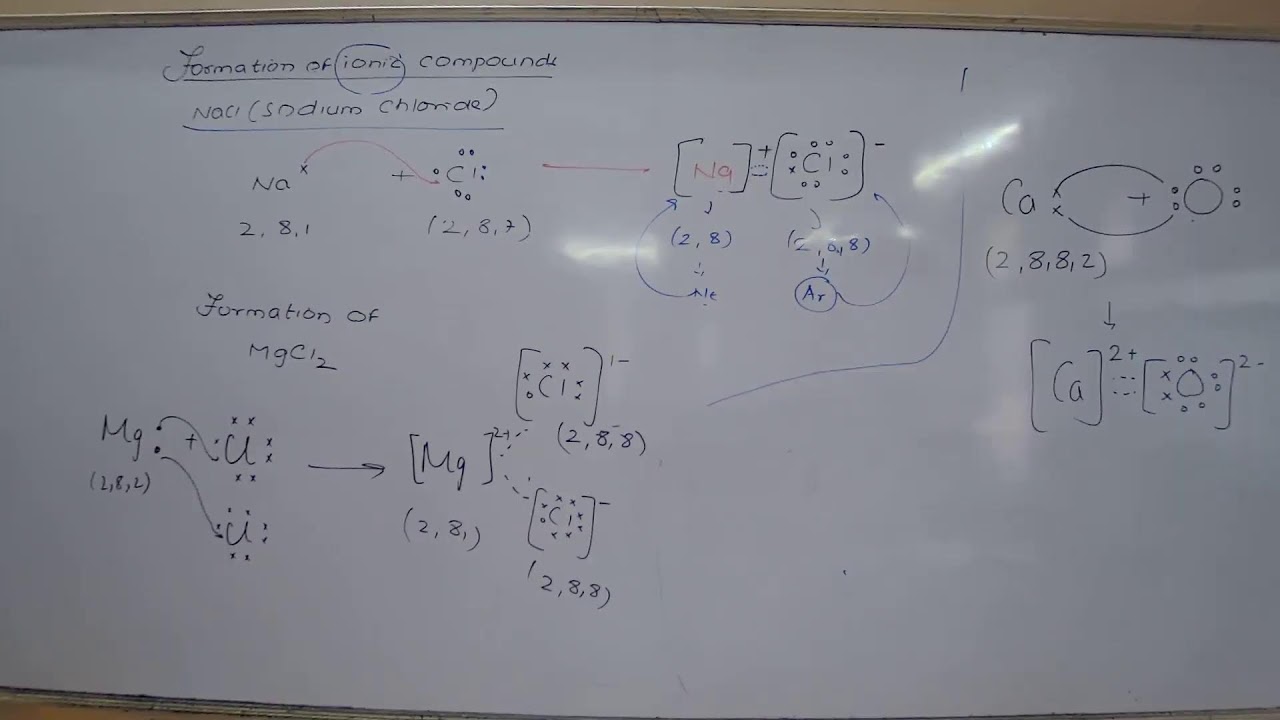 Formation of ionic compounds
NaCl (sodium chloride)
Na + Cl [Na]+ [Cl]-
2, 8, 1 (2, 8, 7) (2, 8) (2, 8, 8)
Ne Ar
Formation of
MgCl2
Mg + Cl [Mg]2+ [Cl]1-
(2,8,2) (2, 8,) (2, 8, 8)
Cl [Cl]-
(2, 8, 8)
Ca + O
(2, 8, 8, 2)
↓
[Ca]2+ [O]2-